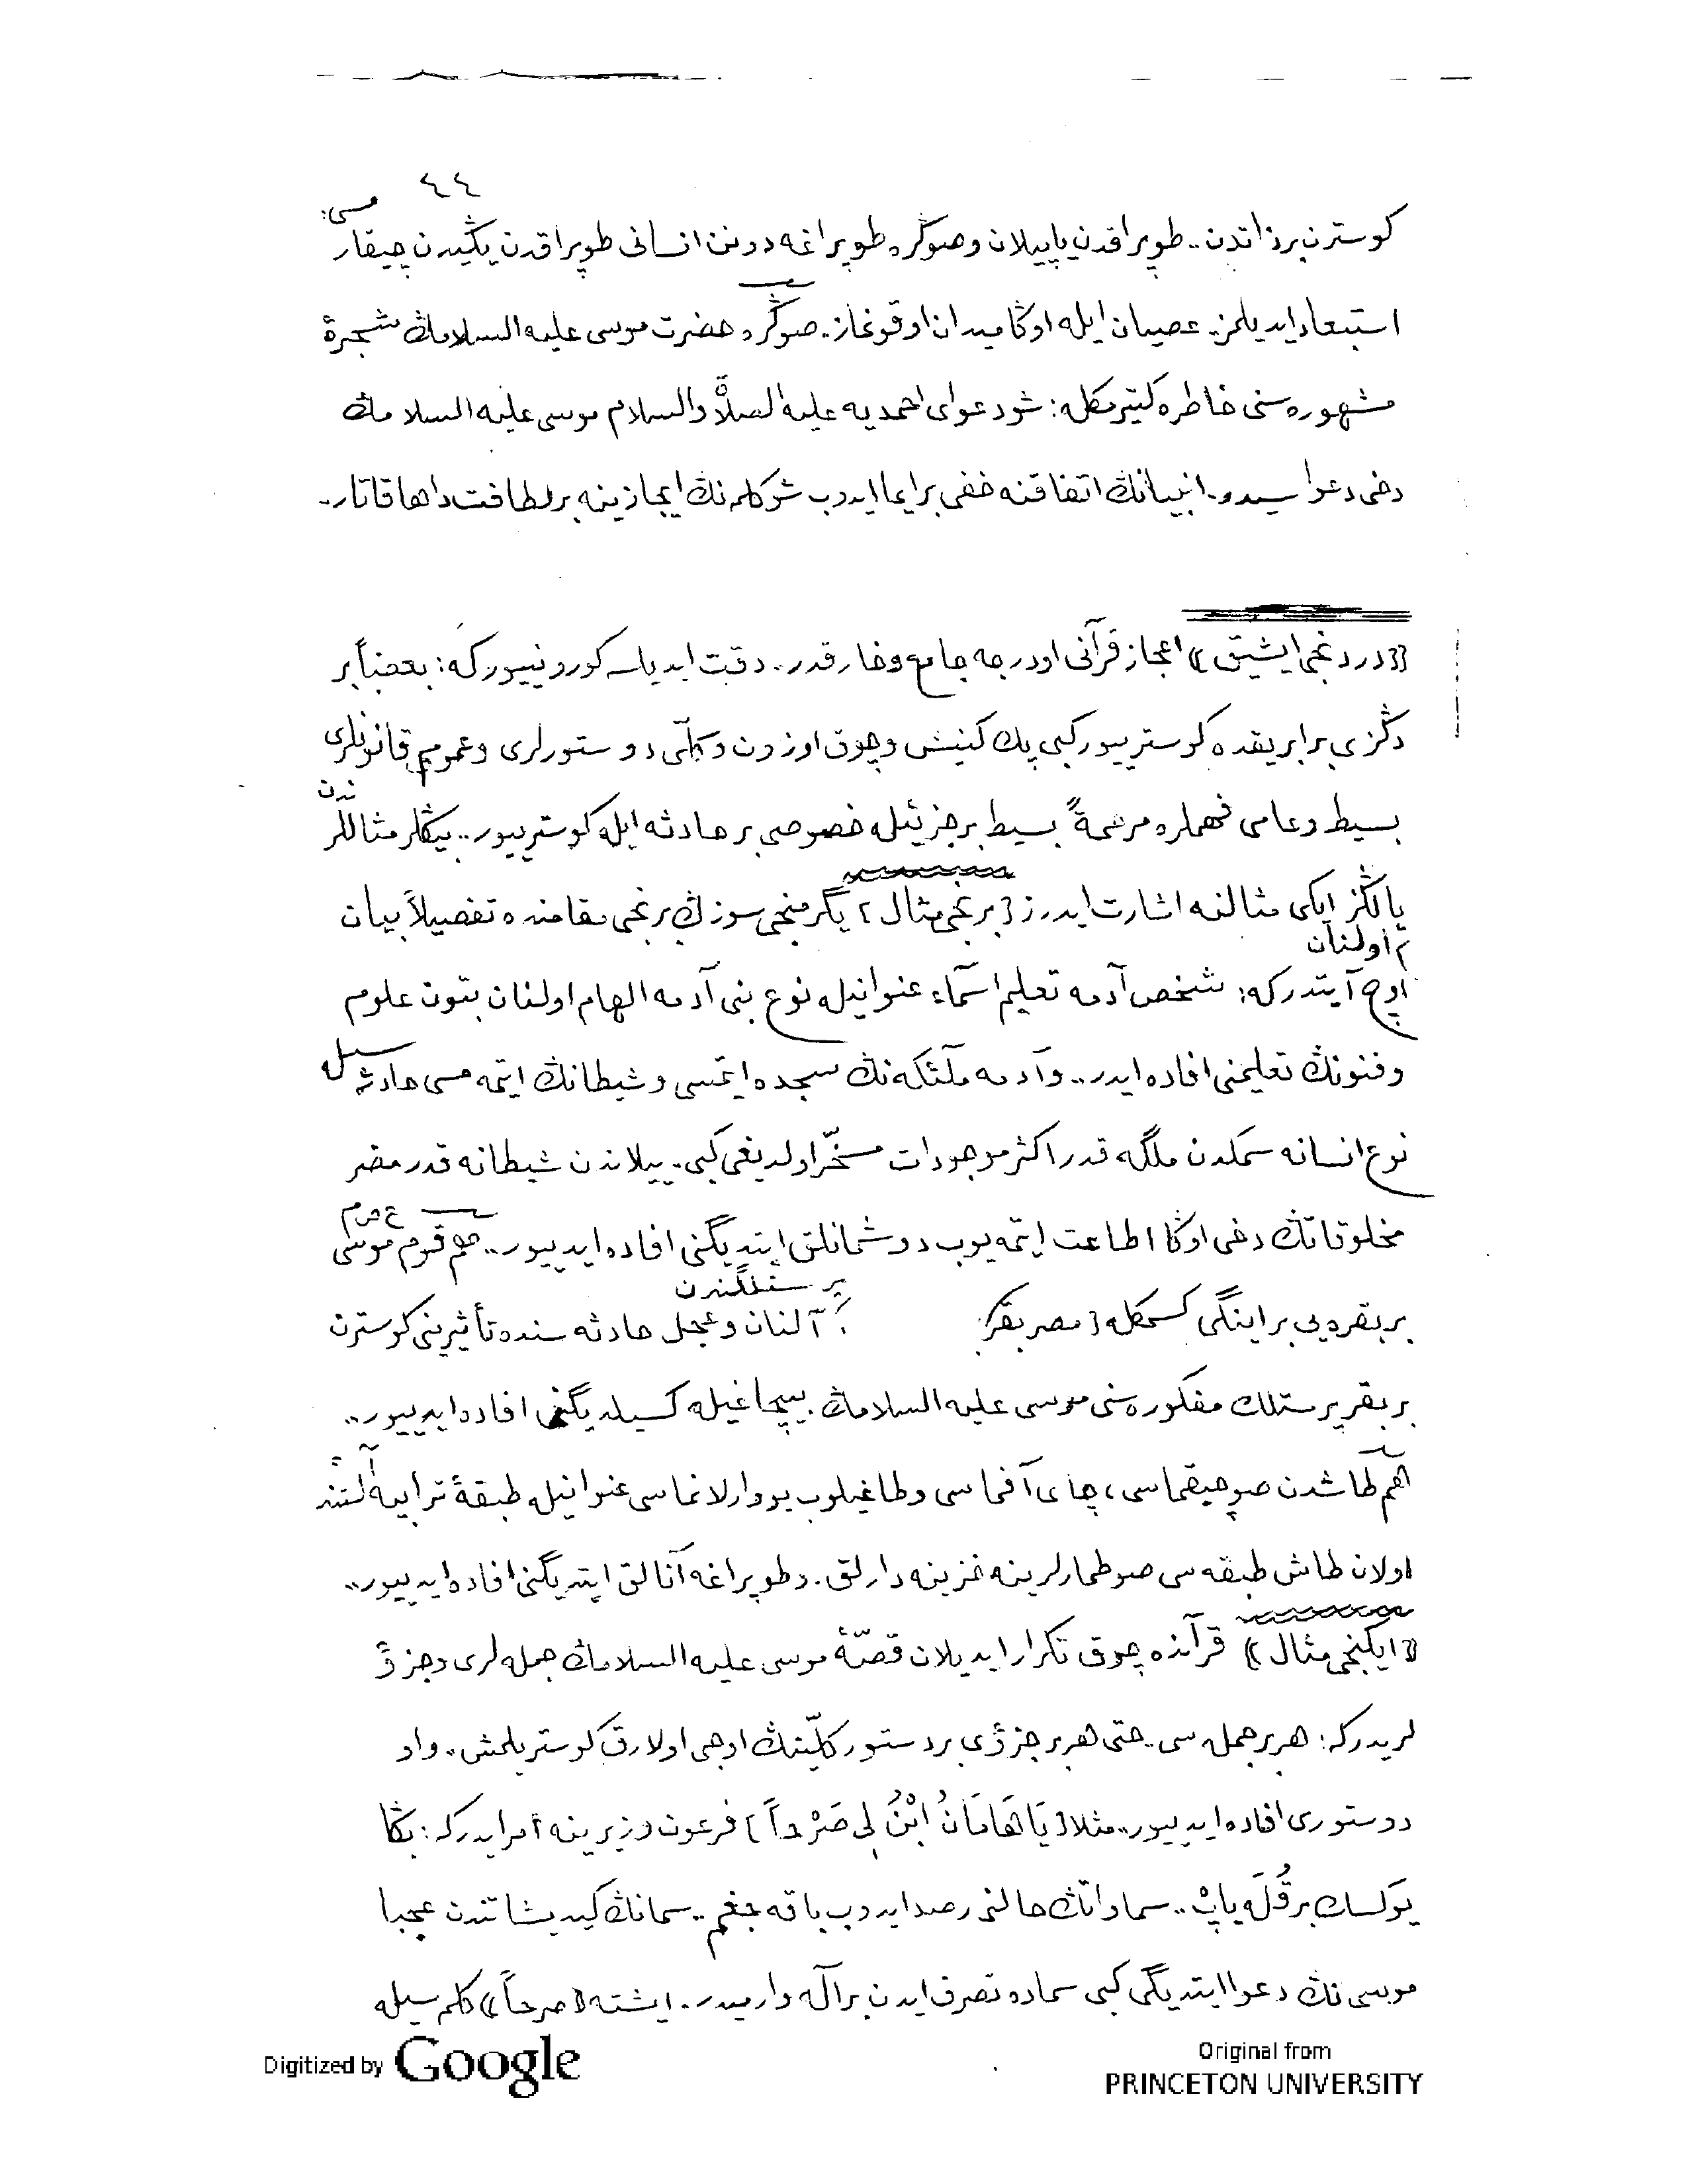 ٤٤
كوسترن برذاتدن.. طوپراقدن یاپیلان وصوڭره طوپراغه دونن انسانی طوپراقدن یڭیدن چیقارمسی:
استبعاد ایدیلمز. عصیان ایله اوڭا میدان اوقونماز. صوڭره حضرت موسی علیه السلامڭ شجرهٔ
مشهوره سنی خاطره كتیرمكله: شو دعوای احمدیه علیه الصلاة والسلام موسی علیه السلامڭ
دخی دعواسیدر. انبیانڭ اتفاقنه خفی برایما ایدوب شو كلمه نڭ ایجازینه بر لطافت داها قاتار.
«دردنجی ایشیق» اعجاز قرآنی اودرجه جامع وخارقدر. دقت ایدیلسه كورونییور كه: بعضاً بر
دڭزی برابریقده كوسترییور كبی پك كنیش وچوق اوزون وكلّی دوستورلری وعمومی قانونلری
بسیط وعامی فهملره مرحمةً بسیط بر جزئیله خصوصی بر حادثه ایله كوسترییور.. بیڭلر مثاللرندن
یالڭز ایكی مثالنه اشارت ایدرز [برنجی مثال] یگرمنجی سوزڭ برنجی مقامنده تفصیلاً بیان اولنان
اوچ آیتدر كه: شخص آدمه تعلیم اسماء عنوانیله نوع بنی آدمه الهام اولنان بتون علوم
وفنونڭ تعلیمنی افاده ایدر.. وآدمه ملئكه نڭ سجده ایتمسی وشیطانڭ ایتمه مسی حادثه سیله
نوع انسانه سمكدن ملگه قدر اكثر موجودات مسخّر اولدیغی كبی. ییلاندن شیطانه قدر مضر
مخلوقاتڭ دخی اوڭا اطاعت ایتمه یوب دوشمانلق ایتدیگنی افاده ایدییور.. هم قوم موسی ع م
بر بقره یی بر اینگی كسمكله [مصر بقر پرستلگندن آلنان وعجل حادثه سنده تأثیرینی كوسترن
بر بقرپرستلك مفكوره سنی موسی علیه السلامڭ بیچاغیله كسیلدیگنی افاده ایدییور..
هم طاشدن صو چیقماسی، چای آقماسی وطاغیلوب یووارلانماسی عنوانیله طبقهٔ ترابیه آلتنده
اولان طاش طبقه سی صو طمارلرینه خزینه دارلق. وطوپراغه آنالق ایتدیگنی افاده ایدییور..
«ایكنجی مثال» قرآنده چوق تكرار ایدیلان قصّهٔ موسی علیه السلامڭ جمله لری وجزؤ
لریدر كه: هر بر جمله سی. حتی هر بر جزؤی بر دستور كلّینڭ اوجی اولارق كوستریلمش. و او
دوستوری افاده ایدییور.. مثلا [یَا هَامَانُ ابْنُ لِى صَرْحاً] فرعون وزیرینه امر ایدر كه: بڭا
یوكسك بر قُلَه یاپْ.. سماواتڭ حالنی رصد ایدوب باقه جغم.. سمانڭ كیدیشاتندن عجبا
موسی نڭ دعوا ایتدیگی كبی سماده تصرف ایدن بر آله وارمیدر. ایشته «صرحاً» كلمه سیله
Digitized by Google
Original from
PRINCETON UNIVERSITY